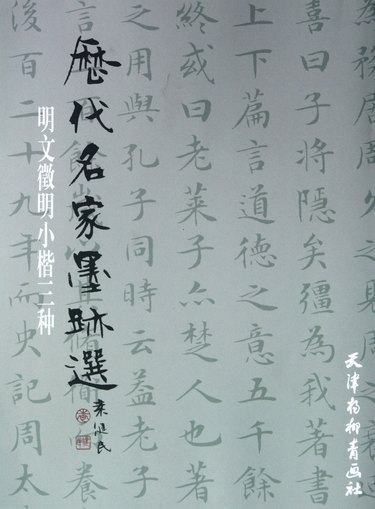 歷代名家墨跡選
明文徵明小楷三种
天津楊柳青画社
喜曰子將隱矣彊為我著書
上下篇言道德之意五千餘
終或曰老萊子亦楚人也著
之用與孔子同時云蓋老子
後百二十九年而史記周太